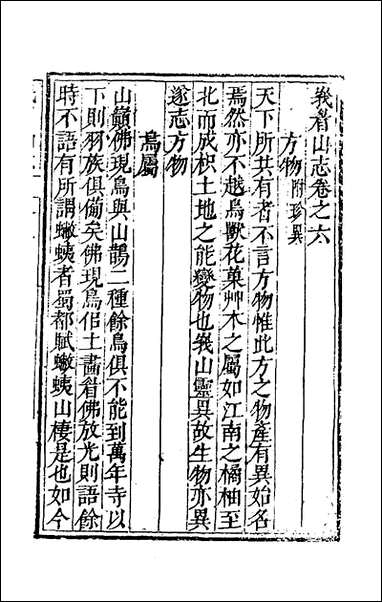 峩眉山志卷之六
方物 附珍異
天下所共有者不言方物惟此方之物產有異始名
焉然亦不越鳥獸花菓艸木之屬如江南之橘柚至
北而成枳土地之能變物也峩山靈異故生物亦異
遂志方物
鳥屬
山巔佛現鳥與山鵲二種餘鳥俱不能到萬年寺以
下則羽族俱備矣佛現鳥佀土畵眉佛放光則語餘
時不語有所謂𪅂𪀗者蜀都賦𪅂𪀗山棲是也如今